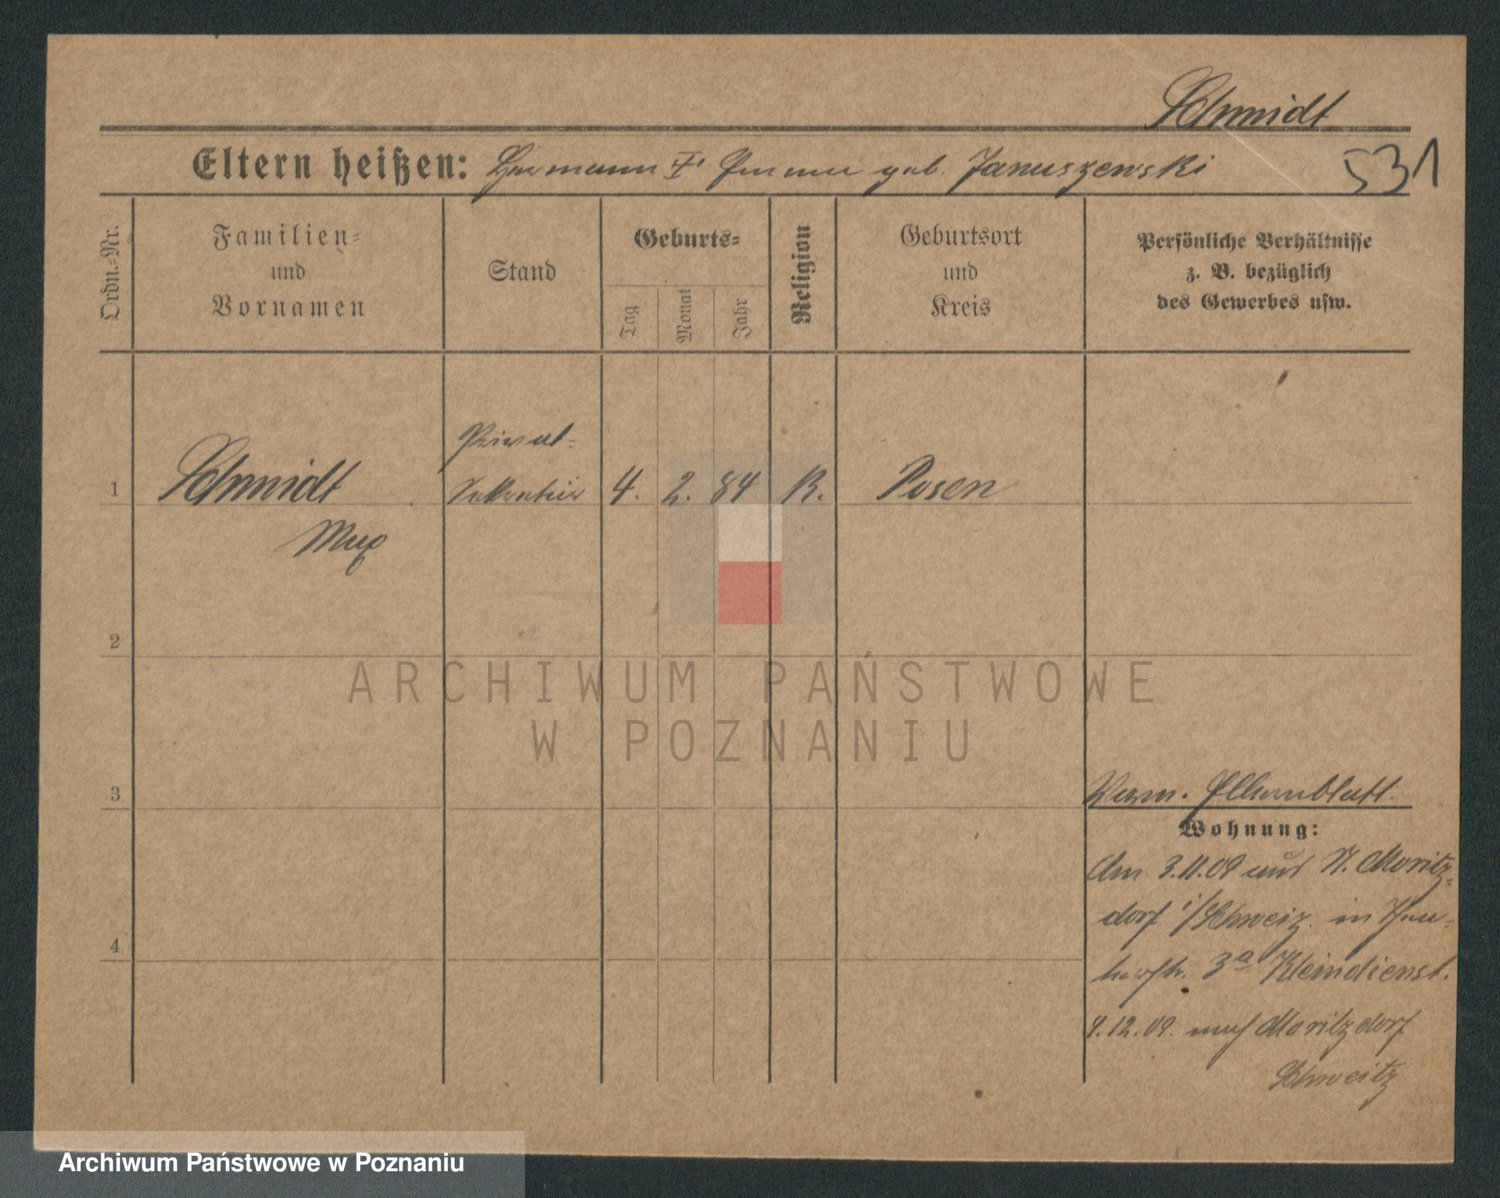 Schmidt
Eltern heißen: Hermann Emma geb. Januszewski
531
Ordn.-Nr.
Familien-
und
Vornamen
Stand
Geburts-
Tag
Monat
Jahr
Religion
Geburtsort
und
Kreis
Persönliche Verhältnisse
z. B. bezüglich
des Gewerbes usw.
Privat-
1 Schmidt Sekretär 4. 2. 84 R. Posen
Max
2
ARCHIWUM PAŃSTWOWE
W POZNANIU
3
Verm. Elternblatt.
Wohnung:
Am 3.11.09 aus St. Moritz-
dorf i/Schweiz in
3a Kleindienst.
4
9.12.09. nach Moritzdorf
Schweitz
Archiwum Państwowe w Poznaniu